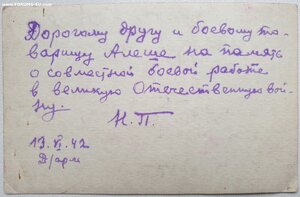 Дорогому другу и боевому то-
варищу Алеше на память
о совместной боевой работе
в великую Отечественную вой-
ну.
Н.П.
13.VI.42
Д/арм